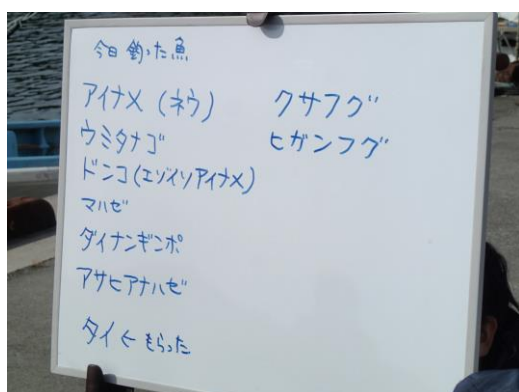 今日 釣った魚
アイナメ (ネウ)
ウミタナゴ
ドンコ(エゾイソアイナメ)
マハゼ
ダイナンギンポ
アサヒアナハゼ
タイ ← もらった
クサフグ
ヒガンフグ